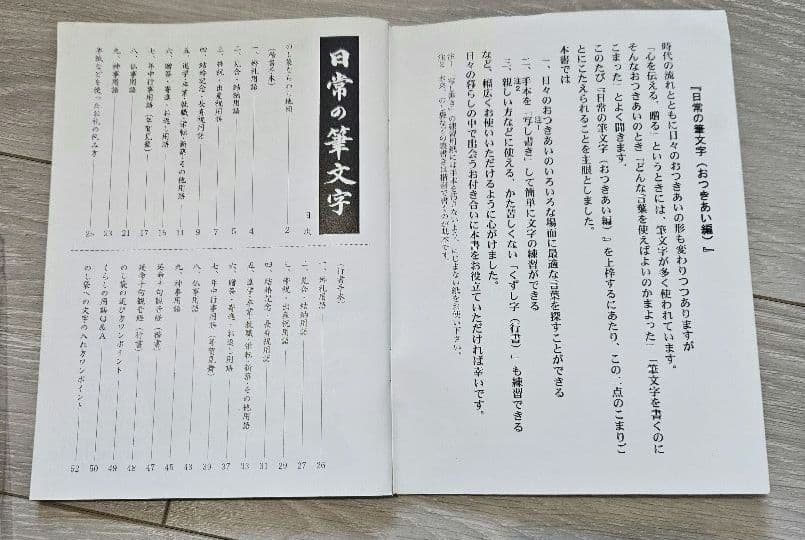 『日常の筆文字（おつきあい編）』
時代の流れとともに日々のおつきあいの形も変わりつつありますが
「心を伝える、贈る」というときには、筆文字が多く使われています。
そんなおつきあいのとき「どんな言葉を使えばよいのかまよった」「筆文字を書くのに
こまった」とよく聞きます。
このたび『日常の筆文字（おつきあい編）』を上梓するにあたり、この二点のこまりご
とにこたえられることを主眼としました。
本書では
一、日々のおつきあいのいろいろな場面に最適な言葉を探すことができる
二、手本を「写し書き」して簡単に文字の練習ができる
注1
三、親しい方などに使える、かた苦しくない「くずし字（行書）」も練習できる
注2
など、幅広くお使いいただけるように心がけました。
日々の暮らしの中で出会うお付き合いに本書をお役立ていただければ幸いです。
注1 「写し書き」の練習用紙には手本を汚さないよう、にじまない紙をお使い下さい。
日常の筆文字
目次
（楷書手本）
一、御礼用語 4
二、見合・結納用語 5
三、御祝・出産祝用語 7
四、結婚記念・長寿祝用語 9
五、進学・卒業・就職・栄転・新築・その他用語 11
六、贈答・寄進・お返し用語 15
七、年中行事用語（年賀見舞） 17
八、仏事用語 18
九、神事用語 21
23
26
（行書手本）
一、御礼用語 26
二、見合・結納用語 27
三、御祝・出産祝用語 29
四、結婚記念・長寿祝用語 31
五、進学・卒業・就職・栄転・新築・その他用語 33
六、贈答・寄進・お返し用語 37
七、年中行事用語（年賀見舞） 39
八、仏事用語 40
九、神事用語 43
延命十句観音経（楷書） 45
延命十句観音経（行書） 47
のし袋の選び方ワンポイント 48
くらしの用語Q&A 49
50
のし袋への文字の入れ方ワンポイント 52